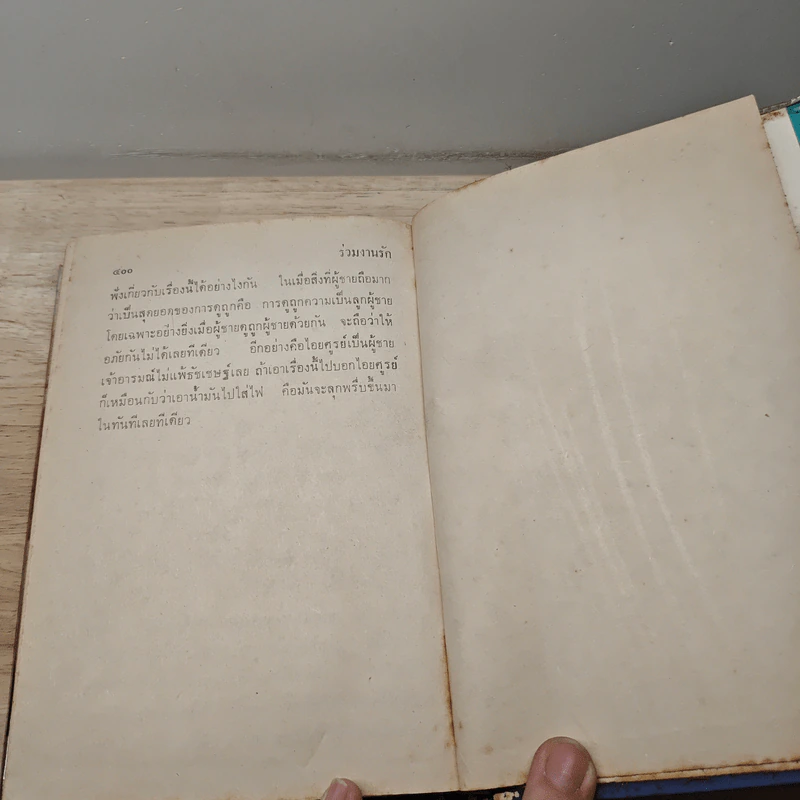 ๔๐๐
ร่วมงานรัก
พึงเกี่ยวกับเรื่องนี้ได้อย่างไงกัน ในเมื่อสิ่งที่ผู้ชายถือมาก
ว่าเป็นสุดยอดของการดูถูกคือ การดูถูกความเป็นลูกผู้ชาย
โดยเฉพาะอย่างยิ่งเมื่อผู้ชายดูถูกผู้ชายด้วยกัน จะถือว่าให้
อภัยกันไม่ได้เลยทีเดียว อีกอย่างคือไอยศูรย์เป็นผู้ชาย
เจ้าอารมณ์ไม่แพ้ธัชเชษฐ์เลย ถ้าเอาเรื่องนี้ไปบอกไอยศูรย์
ก็เหมือนกับว่าเอาน้ำมันไปใส่ไฟ คือมันจะลุกพรึบขึ้นมา
ในทันทีเลยทีเดียว